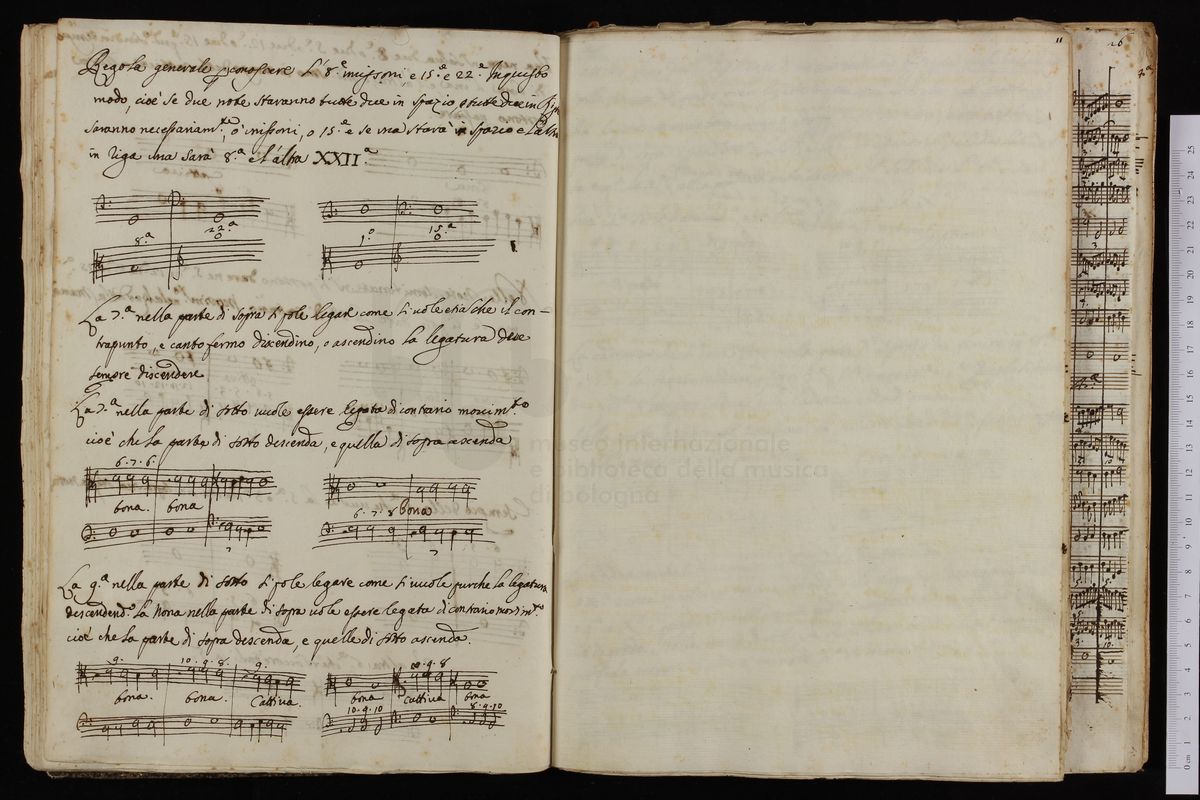 Regola generale p conoscere l'8.ª inissoni, e 15.ª e 22.ª In questo
modo, cioè se due note staranno tutte due in spazio o tutte due in
saranno necessariam.te, o inissoni, o 15.ª e se una starà in spazio e l'altra
in riga una sarà 8.ª e l'altra XXII.ª
8.ª 22.ª 1.º 15.ª
La 7.ª nella parte di sopra si pole legare come si vole che il con-
trapunto, e canto fermo discendino, o ascendino la legatura deve
sempre discendere
La 7.ª nella parte di sotto vuole essere legata di contrario movim.to
cioè che la parte di sotto descenda, e quella di sopra ascenda
6. 7. 6.
bona. bona
6. 7. 8 bona
7 7
La 9.ª nella parte di sotto si pole legare come si vuole purche la legatura
descendend.º La Nona nella parte di sopra vole essere legata di contrario movim.to
cioè che la parte di sopra descenda, e quelle di sotto ascenda
9. 10. 9. 8. 9. 10. 9. 8
bona. bona. Cattiva. bona cattiva bona
10. 9. 10 8. 9. 10
museo internazionale
e biblioteca della musica
di bologna
11
26
0 cm 1 2 3 4 5 6 7 8 9 10 11 12 13 14 15 16 17 18 19 20 21 22 23 24 25